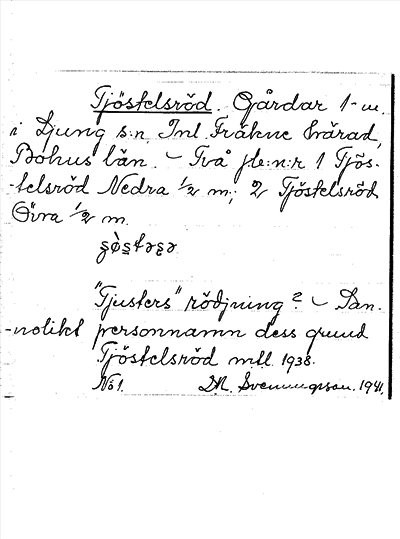 Tjöstelsröd. Gårdar 1 m.
i Ljung s:n, Inl. Fräkne härad,
Bohus län. – Två fle:n:r 1 Tjös-
-telsröd Nedra 1/2 m; 2 Tjöstelsröd
Övra 1/2 m.
"Tjusters" rödjning? – San-
-nolikt personnamn dess grund
Tjöstelsröd mtl. 1938.
No 1. D.A. Svenungson. 1941.